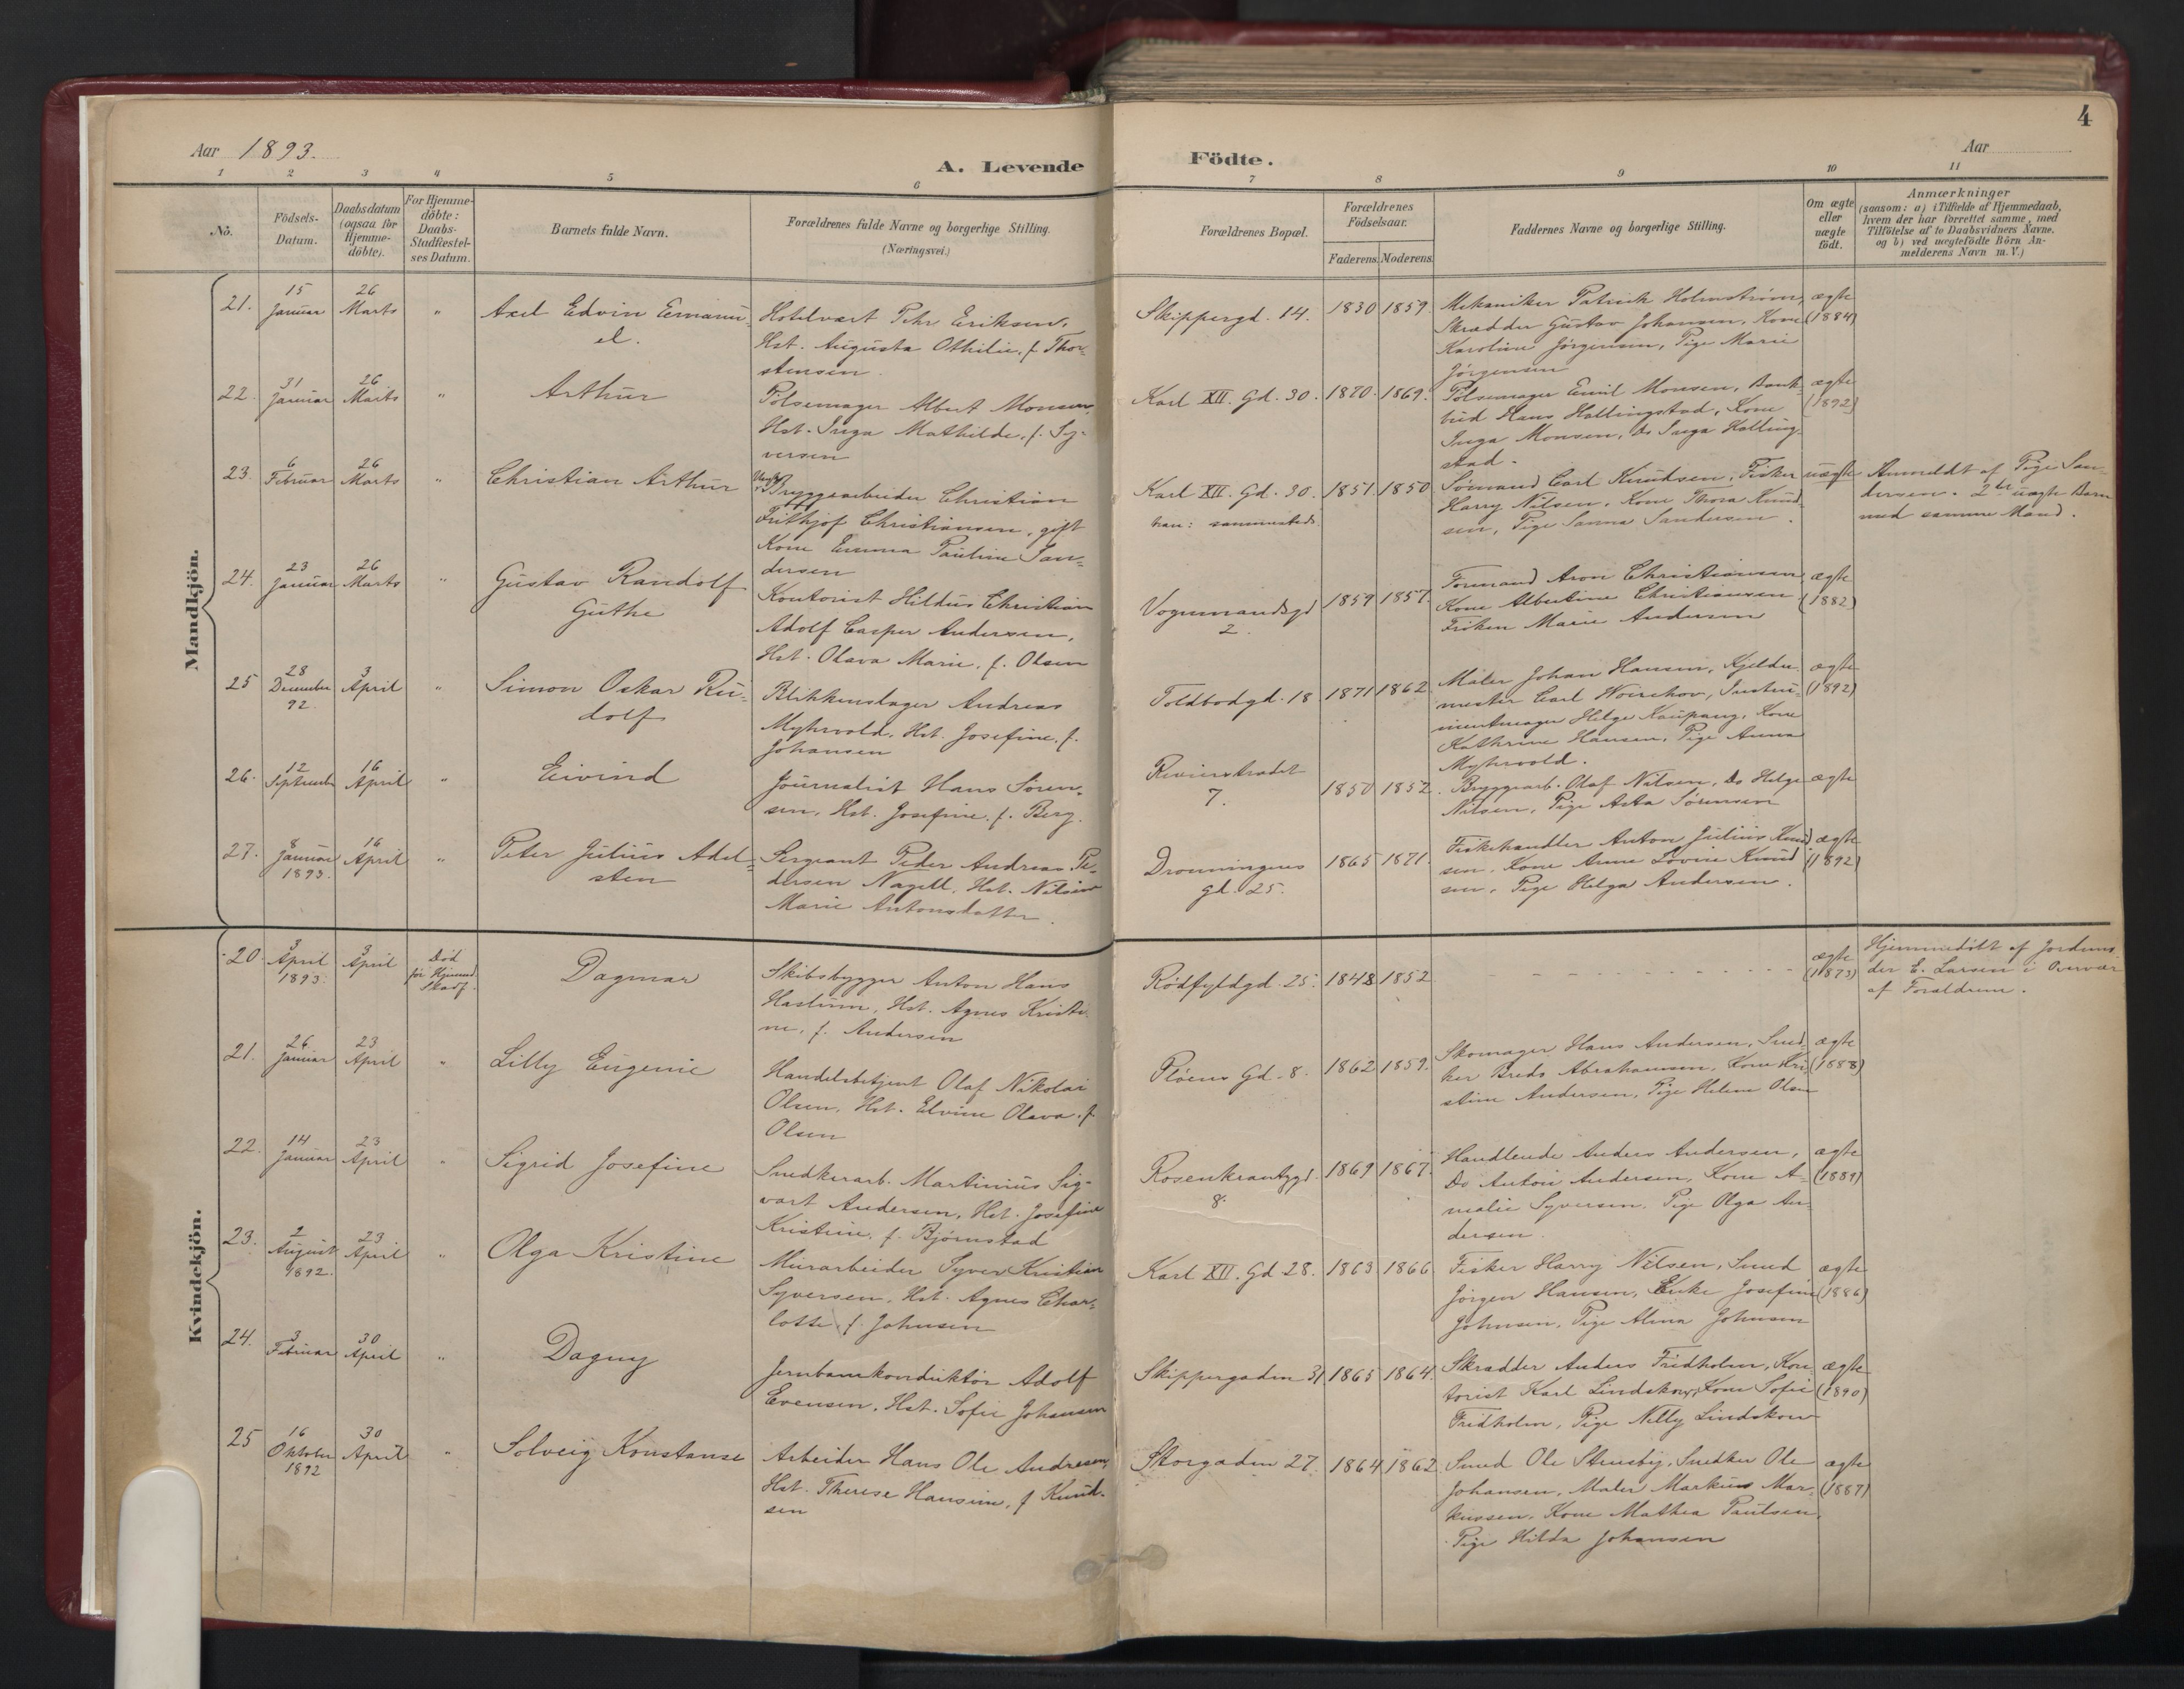 4
Aar 1893.
A. Levende Födte.
Aar
1 2 3 4 5 6 7 8 9 10 11
No.
Födsels-
Datum.
Daabsdatum
(ogsaa for
Hjemme-
döbte).
For Hjemme-
döbte:
Daabs-
Stadfæstel-
ses Datum.
Barnets fulde Navn.
Forældrenes fulde Navne og borgerlige Stilling.
(Næringsvei.)
Forældrenes Bopæl.
Forældrenes
Födselsaar.
Faderens. Moderens.
Faddernes Navne og borgerlige Stilling.
Om ægte
eller
uægte
født.
Anmærkninger
(saasom: a) i Tilfælde af Hjemmedaab,
hvem der har forrettet samme, med
Tilföielse af to Daabsvidners Navne,
og b) ved uægtefödte Börn An-
melderens Navn m. V.)
Mandkjön.
21.
15
Januar
26
Marts
"
Axel Edvin Emanu-
el.
Hotelvært Pehr Eriksen,
Hst. Augusta Othilie, f. Thor-
stensen
Skippergd. 14.
1830 1859.
Mekaniker Patrick Holmstrøm,
Skrædder Gustav Johansen, Kone
Karoline Jörgensen, Pige Marie
Jörgensen
ægte
(1884)
22.
31
Januar
26
Marts
"
Arthur
Pölsemager Albert Monsen,
Hst. Inga Mathilde, f. Sy-
versen
Karl XII. Gd. 30.
1870. 1869.
Pölsemager Emil Monsen, Bank-
bud Hans Hallingstad, Kone
Inga Monsen, Do Inga Halling-
stad.
ægte
(1892)
23.
6
Februar
26
Marts
"
Christian Arthur
Ungk.
Bryggearbeider Christian
Frithjof Christiansen, gift
Kone Emma Pauline San-
dersen
Karl XII. Gd. 30.
han: sammesteds.
1851. 1850
Sömand Carl Knudsen, Fisker
Harry Nilsen, Kone Thora Knud-
sen, Pige Sanna Sandersen.
uægte
Anmeldt af Pige San-
dersen. 2det uægte Barn
med samme Mand.
24.
23
Januar
26
Marts
"
Gustav Randolf
Guthe
Kontorist Hildus Christian
Adolf Casper Andersen,
Hst. Olava Marie, f. Olsen
Vognmandsgd
2.
1859 1857.
Formand Aron Christiansen
Kone Albertine Christiansen
Fröken Marie Andersen
ægte
(1882)
25
28
December
92.
3
April
"
Simon Oskar Ru-
dolf
Blikkenslager Andreas
Myhrvold, Hst. Josefine, f.
Johansen
Toldbodgd. 18
1871 1862
Maler Johan Hansen, Kjelder-
mester Carl Woirchov, Instru-
mentmager Helge Kaupang, Kone
Kathrine Hansen, Pige Anna
Myhrvold.
ægte
(1892)
26.
12
September
16
April
"
Eivind
Journalist Hans Sören-
sen, Hst. Josefine, f. Berg.
Revierstrædet
7.
1850 1852.
Bryggearb. Olaf Nilsen, Do Helge
Nilsen, Pige Asta Sörensen
ægte
27.
8
Januar
1893.
16
April
"
Peter Julius Adel-
sten
Sergeant Peder Andreas Pe-
dersen Nagell, Hst. Nilsine
Marie Antonsdatter.
Dronningens
gd. 25.
1865 1871.
Fiskehandler Anton Julius Knud-
sen, Kone Anne Lovise Knud-
sen, Pige Helga Andersen.
ægte
(1892)
Kvindekjön.
20.
3
April
1893.
3
April
Död
för Hjemmed.
Stadf.
Dagmar
Skibsbygger Anton Hans
Hastum, Hst. Agnes Kristi-
ne, f. Andersen
Rödfyldgd. 25.
1848 1852
ægte
(1873)
Hjemmedöbt af Jordemo-
der E. Larsen i Overvær
af Forældrene.
21.
26.
Januar
23
April
"
Lilly Eugenie
Handelsbetjent Olaf Nikolai
Olsen, Hst. Elvine Olava, f.
Olsen
Plöens Gd. 8.
1862 1859.
Skomager Hans Andersen, Sned-
ker Bredo Abrahamsen, Kone Kri-
stine Andersen, Pige Helene Olsen
ægte
(1888)
22.
14
Januar
23
April
"
Sigrid Josefine
Snedkerarb. Martinius Sig-
vart Andersen, Hst. Josefine
Kristine, f. Björnstad
Rosenkrantzgd.
8.
1869 1867.
Handlende Anders Andersen,
Do Anton Andersen, Kone A-
malie Syversen, Pige Olga An-
dersen.
ægte
(1889)
23.
2
August
1892.
23
April
"
Olga Kristine
Murarbeider Syver Kristian
Syversen, Hst. Agnes Char-
lotte f. Johnsen
Karl XII. Gd 28.
1863 1866
Fisker Harry Nilsen, Smed
Jörgen Hansen, Enke Josefine
Johnsen, Pige Alma Johnsen
ægte
(1886)
24.
3
Februar
30
April
"
Dagny
Jernbanekonduktör Adolf
Evensen, Hst. Sofie Johansen
Skippergaden 31
1865 1864.
Skrædder Anders Fridholm, Kon-
torist Karl Lindskow, Kone Sofie
Fridholm, Pige Nelly Lindskow
ægte
(1890)
25
16
Oktober
1892
30
April
"
Solveig Konstanse
Arbeider Hans Ole Andresen,
Hst. Therese Hansine, f Knud-
sen
Storgaden 27.
1864 1862.
Smed Ole Strusby, Snedker Ole
Johansen, Maler Markus Mar-
kussen, Kone Mathea Paulsen,
Pige Hilda Johansen
ægte
(1887)